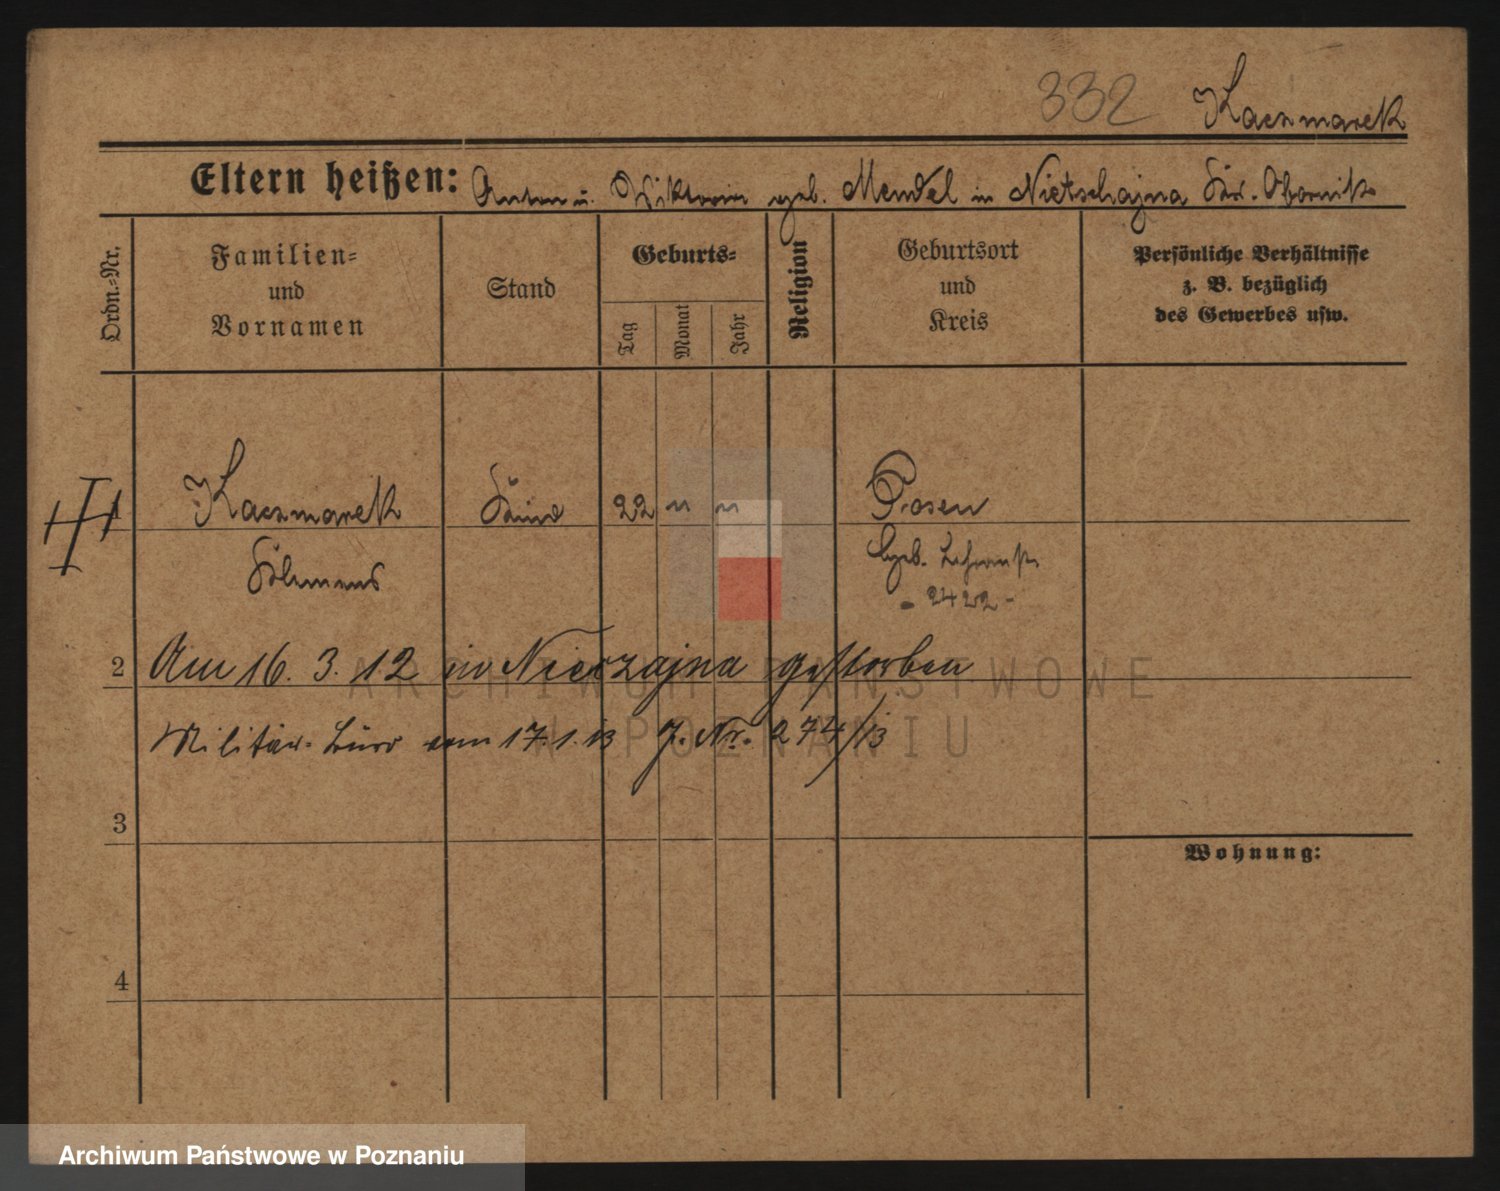 332 Kaczmarek
Eltern heißen: Anton u. Wiktoria geb. Mendel in Nietschajna Kr. Obornik
Ordn.-Nr.
Familien-
und
Vornamen
Stand
Geburts-
Tag
Monat
Jahr
Religion
Geburtsort
und
Kreis
Persönliche Verhältnisse
z. B. bezüglich
des Gewerbes usw.
1 Kaczmarek Kind 22 Posen
Klemens Geb.
- 2422 -
2 Am 16. 3. 12 in Nieczajna gestorben
Militär-Büro vom 17.1.13 J. Nr. 274/13
3
Wohnung:
4
ARCHIWUM PAŃSTWOWE
W POZNANIU
Archiwum Państwowe w Poznaniu